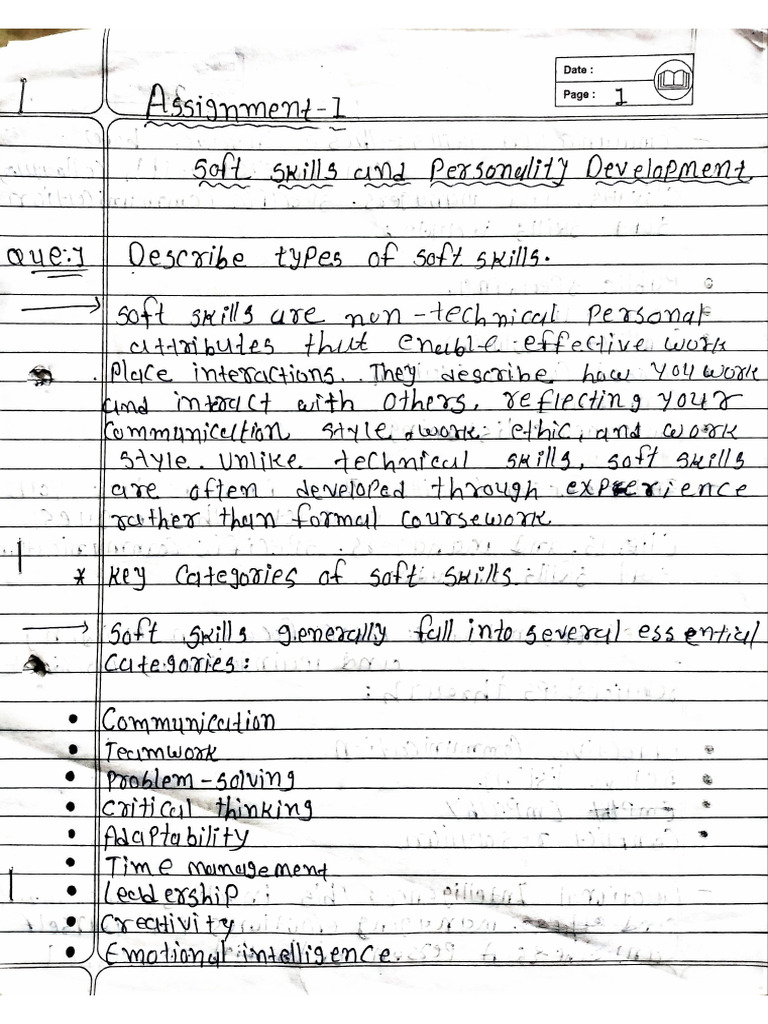 Date :
Page : 1
Assignment-1
Soft skills and Personality Development
Que:1 Describe types of soft skills.
→ Soft skills are non-technical personal
attributes that enable effective work
place interactions. They describe how you work
and interact with others, reflecting your
communication style, work ethic, and work
style. Unlike technical skills, soft skills
are often developed through experience
rather than formal coursework
* Key Categories of soft skills.
→ Soft skills generally fall into several essential
Categories:
• Communication
• Teamwork
• Problem-solving
• Critical thinking
• Adaptability
• Time management
• Leadership
• Creativity
• Emotional intelligence.